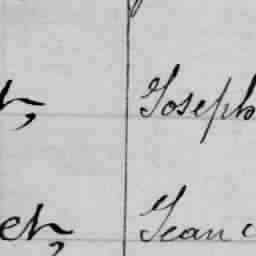 t, Joseph
et, Jean